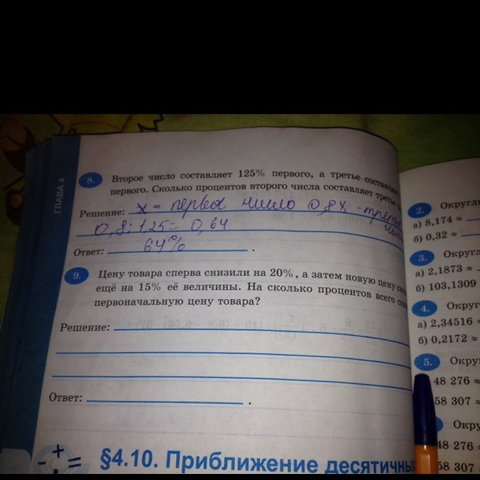 ГЛАВА 4
8. Второе число составляет 125% первого, а третье составляет
первого. Сколько процентов второго числа составляет третье
Решение: x = первое число 0,8x - третье
0,8:125= 0,64
64%
Ответ: .
9. Цену товара сперва снизили на 20%, а затем новую цену
ещё на 15% её величины. На сколько процентов всего
первоначальную цену товара?
Решение:
Ответ: .
§4.10. Приближение десятичных
2. Округли
а) 8,174 ≈
б) 0,32 ≈
3. Округл
а) 2,1873 ≈
б) 103,1309
4. Округ
а) 2,34516 ≈
б) 0,2172 ≈
5. Окру
48 276 ≈
58 307 ≈
Окру
48 276 ≈
58 307 ≈